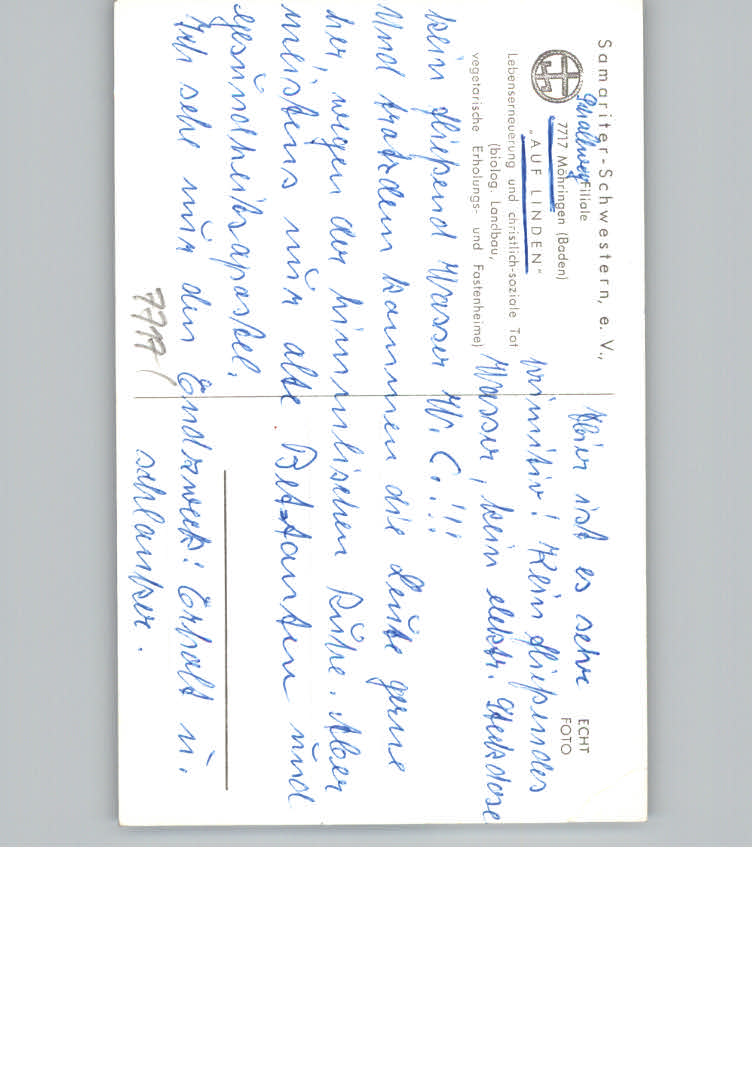 Samariter-Schwestern, e. V.,
Filiale
7717 Möhringen (Baden)
„AUF LINDEN"
Lebenserneuerung und christlich-soziale Tat
(biolog. Landbau,
vegetarische Erholungs- und Fastenheime)
ECHT
FOTO
Hier ist es sehr
primitiv! Kein fließendes
Wasser, kein elektr. Steckdose
kein fließend Wasser W. C.!!!
Und trotzdem kommen die Leute gerne
her, wegen der himmlischen Ruhe. Aber
meistens nur alte Bet-tanten und
Gesundheitsapostel.
Ich sehe nur den Endzweck: Erholt u.
schlanker.
7717